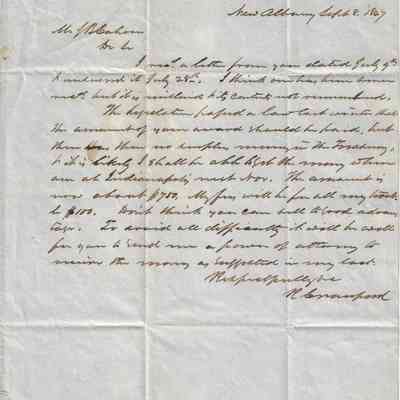 New Albany Sept 8. 1847
Mr J B Cahoon
Dr Sr
I rec'd a letter from you dated July 9th
& answered it July 28th. I think one has been
but it is
The legislature passed a law last winter that
the amount of your award should be paid, but
there was then no surplus money in the Treasury,
& it is likely I shall be able to get the money when
am at Indianapolis next Nov. The amount is
now about $750. My fees will be for all my
be $100. Don't think you can sell to good advan
tage. To avoid all difficulty it will be well
for you to send me a power of attorney to
receive the money as suggested in my last.
Respectfully &c
R Crawford